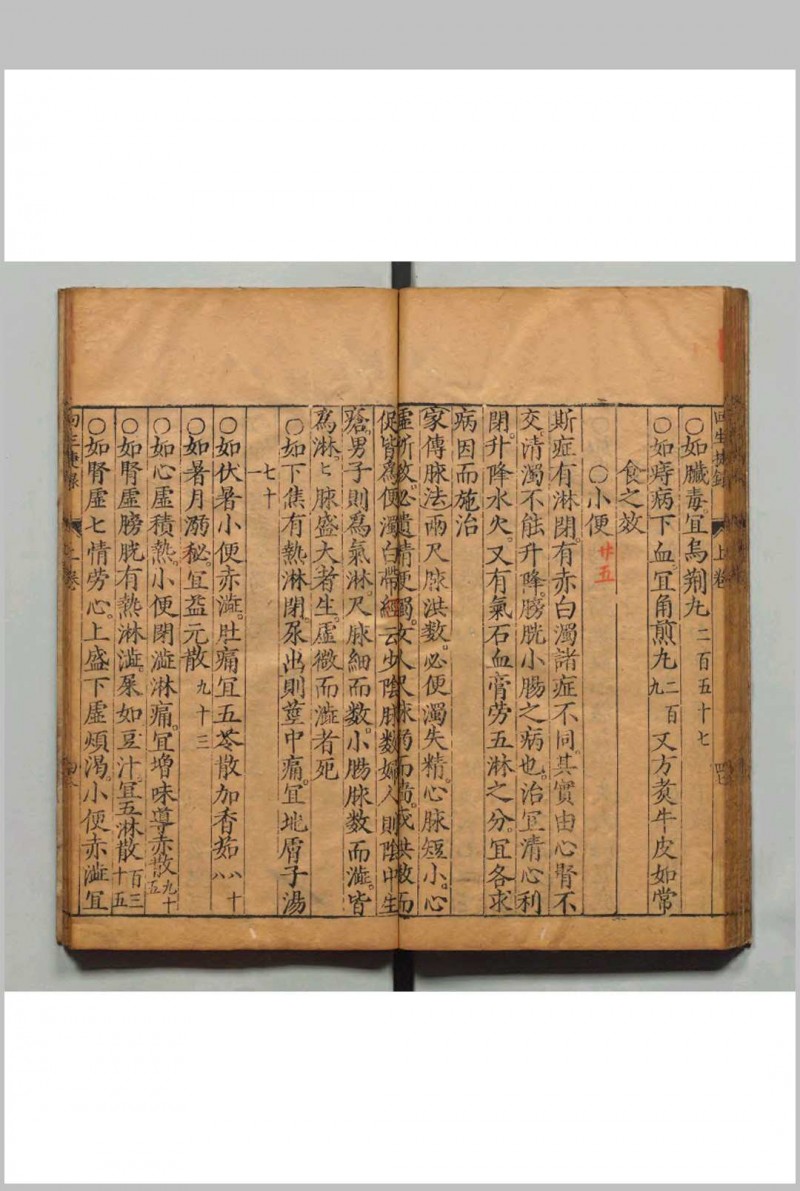 ○如臟毒。宜烏荆丸二百五十七
○如痔病下血。宜角煎丸二百九 又方煑牛皮如常
食之效
○小便 廿五
斯症有淋閉。有赤白濁諸症不同。其實由心腎不
交清濁不能升降。膀胱小腸之病也。治宜清心利
閉。升降水火。又有氣石血膏劳五淋之分。宜各求
病因而施治
家傳脉法兩尺脉洪数。必便濁失精。心脉短小。心
虛所致。必遺精便濁。女人尺脉
促皆為便濁白帶。經云少陰脉数。婦人則陰中生
瘡。男子則為氣淋。尺脉細而数。小腸脉数而澁。皆
為淋。〻脉盛大者生。虛微而澁者死
○如下焦有熱淋閉。尿出則莖中痛。宜地膚子湯
七十一
○如伏暑小便赤澁。肚痛宜五苓散加香茹八十八
○如暑月溺秘。宜益元散九十三
○如心虛積熱。小便閉澁淋痛。宜增味導赤散九十五
○如腎虛膀胱有熱淋澁。尿如豆汁。宜五淋散百三十五
○如腎虛七情劳心。上盛下虛煩渴。小便赤澁宜
上卷